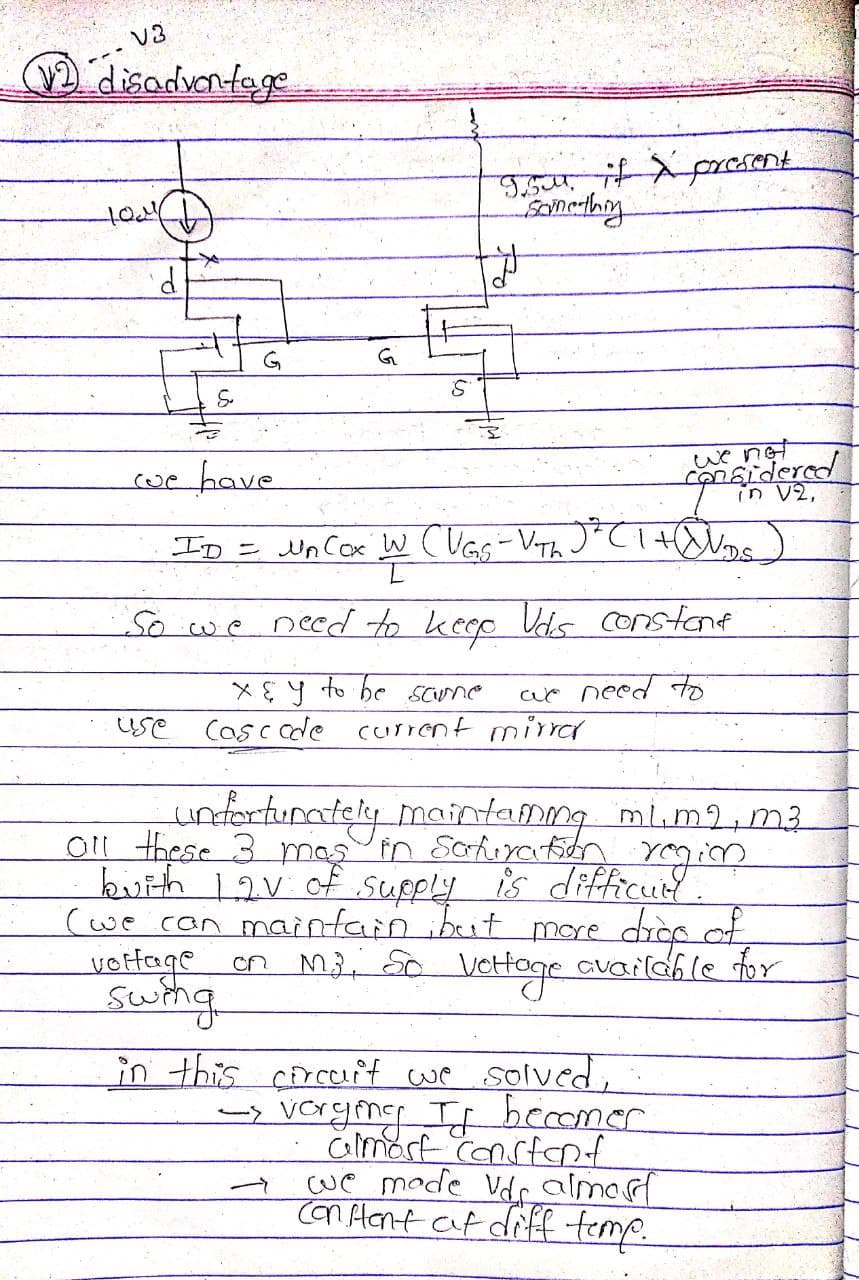 V3
V2 disadvantage
9.5u. if λ present
something
10u
x
d
y
d
G
G
S
S
we have
we not
considered
in V2.
ID = UnCox W/L (VGS-VTh)² (1+λVDS)
So we need to keep Vds constant
x & y to be same we need to
use cascode current mirror
unfortunately maintaining m1, m2, m3
all these 3 mos in saturation region
with 1.2V of supply is difficult.
(we can maintain, but more drop of
voltage on M3, So voltage available for
swing.
in this circuit we solved,
→ varying Id becomes
almost constant
→ we made Vds almost
constant at diff temp.